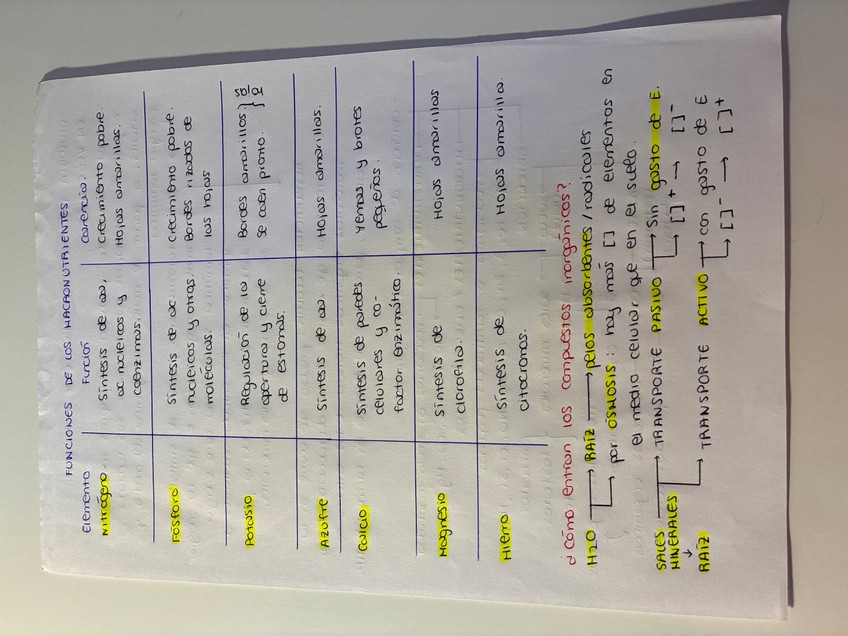 FUNCIONES DE LOS MACRONUTRIENTES
Elemento Función Carencia.
Nitrógeno Síntesis de aa, Crecimiento pobre.
ac. nucleicos y Hojas amarillas.
coenzimas.
Fósforo Síntesis de ac Crecimiento pobre.
nucleicos y otras Bordes rizados de
moléculas. las hojas
Potasio Regulación de la Bordes amarillos
apertura y cierre Se caen pronto.
de estomas.
Azufre Síntesis de aa. Hojas amarillas.
Calcio Síntesis de paredes Yemas y brotes
celulares y co- pequeños.
factor enzimático.
Magnesio Síntesis de Hojas amarillas
clorofila.
Hierro Síntesis de Hojas amarilla.
citocromos.
¿Cómo entran los compuestos inorgánicos?
H2O → RAÍZ → pelos absorbentes/radicales
por ÓSMOSIS: hay más [] de elementos en
el medio celular que en el suelo.
SALES MINERALES → TRANSPORTE PASIVO → Sin gasto de E.
[]+ → []-
↓
RAÍZ → TRANSPORTE ACTIVO → con gasto de E
[]- → []+